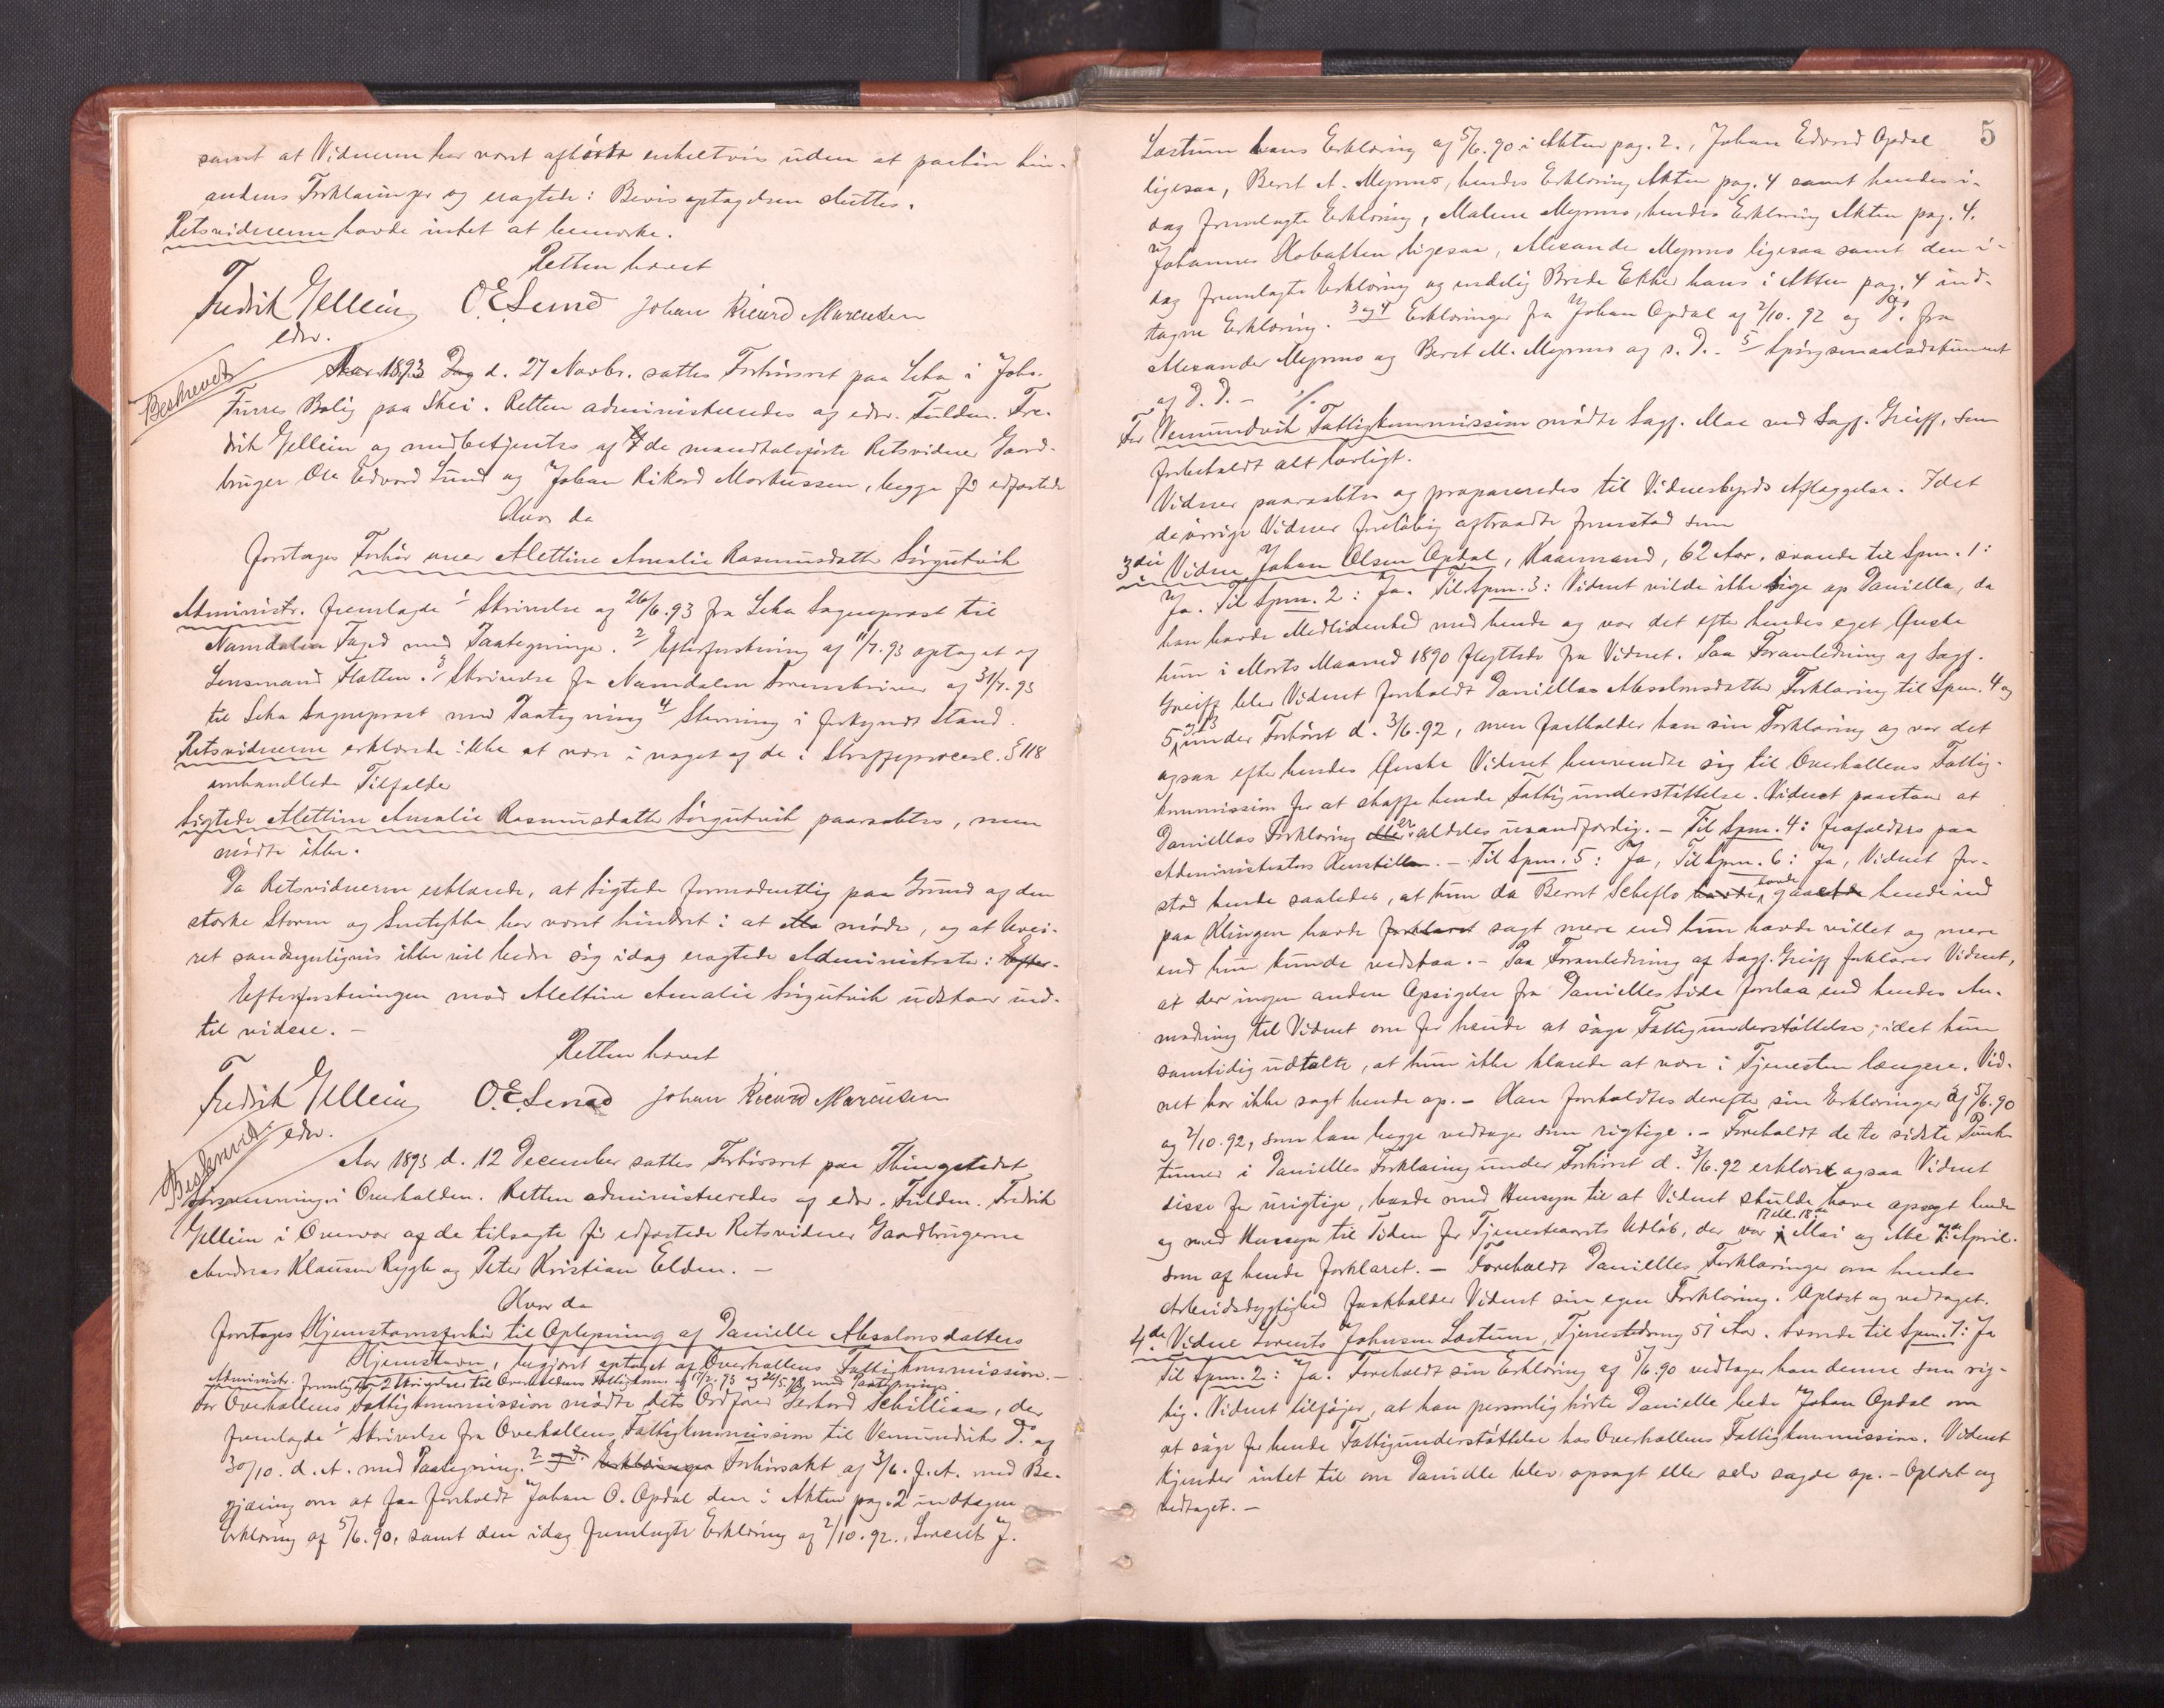 samt at Vidnerne har været afhørte enkeltvis uden at paahøre hin-
andens Forklaringer og eragtede: Bevisoptagelsen sluttes.
Retsvidnerne havde intet at bemærke.
Retten hævet
Fredrik Gellein O.E. Lund Johan Ricard Marcusen
edsv.
Beskrevet
Aar 1893 Dag d. 27 Novbr. sattes Forhørsret paa Leka i Johs.
Furres Bolig paa Skei. Retten administreredes af edsv. Fuldm. Fre-
drik Gellein og medbetjentes af de mandtalsførte Retsvidner Gaard-
bruger Ole Edvard Lund og Johan Rikard Markussen, begge før edfæstede
Hvor da
foretoges Forhør over Alettine Amalie Rasmusdatter Sørgutvik
Administr. fremlagde 1 Skrivelse af 26/6.93 fra Leka Sogneprest til
Namdalen Foged med Paategninger. 2 Efterforskning af 11/7.93 optaget af
Lensmand Flatten. 3 Skrivelse fra Namdalen Sorenskriver af 31/7.93
til Leka Sogneprest med Paategning 4 Stevning i forkyndt Stand.
Retsvidnerne erklærede ikke at være i noget af de i Straffeprocesl. § 118
omhandlede Tilfælde
Sigtede Alettine Amalie Rasmusdatter Sørgutvik paaraabtes, men
mødte ikke.
Da Retsvidnerne erklærede, at Sigtede formodentlig paa Grund af den
stærke Storm og Snetykke har været hindret i at møde, og at Vei-
ret sandsynligvis ikke vil bedre sig idag eragtede Administrator: Efter-
Efterforskningen mod Alettine Amalie Sørgutvik udstaar ind-
til videre. —
Retten hævet
Fredrik Gellein O.E. Lund Johan Ricard Marcusen
edsv.
Beskrevet.
Aar 1893 d. 12 December sattes Forhørsret paa Thingstedet
i Overhalden. Retten administreredes af edsv. Fuldm. Fredrik
Gellein i Overvær af de tilsagte før edfæstede Retsvidner Gaardbrugerne
Andreas Klausen Rygh og Peter Kristian Elden. —
Hvor da
foretoges Hjemstavnsforhør til Oplysning af Danielle Absalonsdatters
Hjemstavn, begjært optaget af Overhallens Fattigkommission. —
Administr. fremlagde 2 Skrivelser til Overhaldens Fattigkom. af 17/2.93 og 26/5.93 med Paategning
For Overhallens Fattigkommission mødte dets Ordfører Gerhard Schilliaas, der
fremlagde 1 Skrivelse fra Overhallens Fattigkommission til Vemundviks Do. af
30/10. d. A. med Paategning. 2 og 3. Erklæringer Forhørsakt af 3/6. f. A. med Be-
gjæring om at faa foreholdt Johan O. Opdal den i Akten pag. 2 indtagne
Erklæring af 5/6.90, samt den idag fremlagte Erklæring af 2/10.92. Lorents J.
5
Lastum hans Erklæring af 5/6.90 i Akten pag. 2., Johan Edvard Opdal
ligesaa, Beret A. Myrmo, hendes Erklæring Akten pag. 4 samt hendes i-
dag fremlagte Erklæring, Malene Myrmo, hendes Erklæring Akten pag. 4.
Johannes ligesaa, Alexander Myrmo ligesaa samt den i-
dag fremlagte Erklæring og endelig Brede Ekker hans i Akten pag. 4 ind-
tagne Erklæring. 3 og 4 Erklæringer fra Johan Opdal af 2/10.92 og Do. fra
Alexander Myrmo og Beret M. Myrmo af s. D. - 5 Spørgsmaalsdokument
af D. D. — ./.
For Vemundvik Fattigkommission mødte Sagf. Moe ved Sagf. Greiff, som
forbeholdt alt lovligt.
Vidner paaraabtes og præpareredes til Vidnesbyrds Aflæggelse. Idet
de øvrige Vidner foreløbig aftraadte fremstod som
3die Vidne Johan Olsen Opdal, Kaarmand, 62 Aar, svarede til Spm. 1:
Ja. Til Spm. 2: Ja. Til Spm. 3: Vidnet vilde ikke sige op Daniella, da
han havde Medlidenhed med hende og var det efter hendes eget Ønske
hun i Marts Maaned 1890 flyttede fra Vidnet. Paa Foranledning af Sagf.
Greiff blev Vidnet foreholdt Daniellas Absalonsdatter Forklaring til Spm. 4 og
5 og 13 under Forhøret d. 3/6.92, men fastholder han sin Forklaring og var det
ogsaa efter hendes Ønske Vidnet henvendte sig til Overhallens Fattig-
kommission for at skaffe hende Fattigunderstøttelse. Vidnet paastaar at
Daniellas Forklaring er aldeles usandfærdig. — Til Spm. 4: frafaldtes paa
Administrators Henstillen. — Til Spm. 5: Ja, Til Spm. 6: Ja, Vidnet for-
stod hende saaledes, at hun da Bernt Scheflo havde gaaet hende ind
paa Klingen havde forklaret sagt mere end hun havde villet og mere
end hun kunde vedstaa. — Paa Foranledning af Sagf. Greiff forklarer Vidnet,
at der ingen anden Opsigelse fra Danielles Side forelaa end hendes An-
modning til Vidnet om for hende at søge Fattigunderstøttelse, idet hun
samtidig udtalte, at hun ikke klarede at være i Tjenesten længere. Vid-
net har ikke sagt hende op. — Han foreholdtes derefter sine Erklæringer af 5/6.90
og 2/10.92, som han begge vedtager som rigtige. — Foreholdt de to sidste Punk-
tummer i Danielles Forklaring under Forhøret d. 3/6.92 erklærer ogsaa Vidnet
disse for urigtige, baade med Hensyn til at Vidnet skulde have opsagt hende
og med Hensyn til Tiden for Tjenesteaarets Udløb, der var 17 ell. 18de Mai og ikke 14de April
som af hende forklaret. — Foreholdt Danielles Forklaringer om hendes
Arbeidsdygtighed fastholder Vidnet sin egen Forklaring. Oplæst og vedtaget.
4de Vidne Lorents Johnsen Lastum, Tjenestedreng 51 Aar. svarede til Spm. 1: Ja
Til Spm. 2: Ja. Foreholdt sin Erklæring af 5/6.90 vedtager han denne som rig-
tig. Vidnet tilføier, at han personlig hørte Danielle bede Johan Opdal om
at søge for hende Fattigunderstøttelse hos Overhallens Fattigkommission. Vidnet
kjender intet til om Danielle blev opsagt eller selv sagde op. — Oplæst og
vedtaget. —